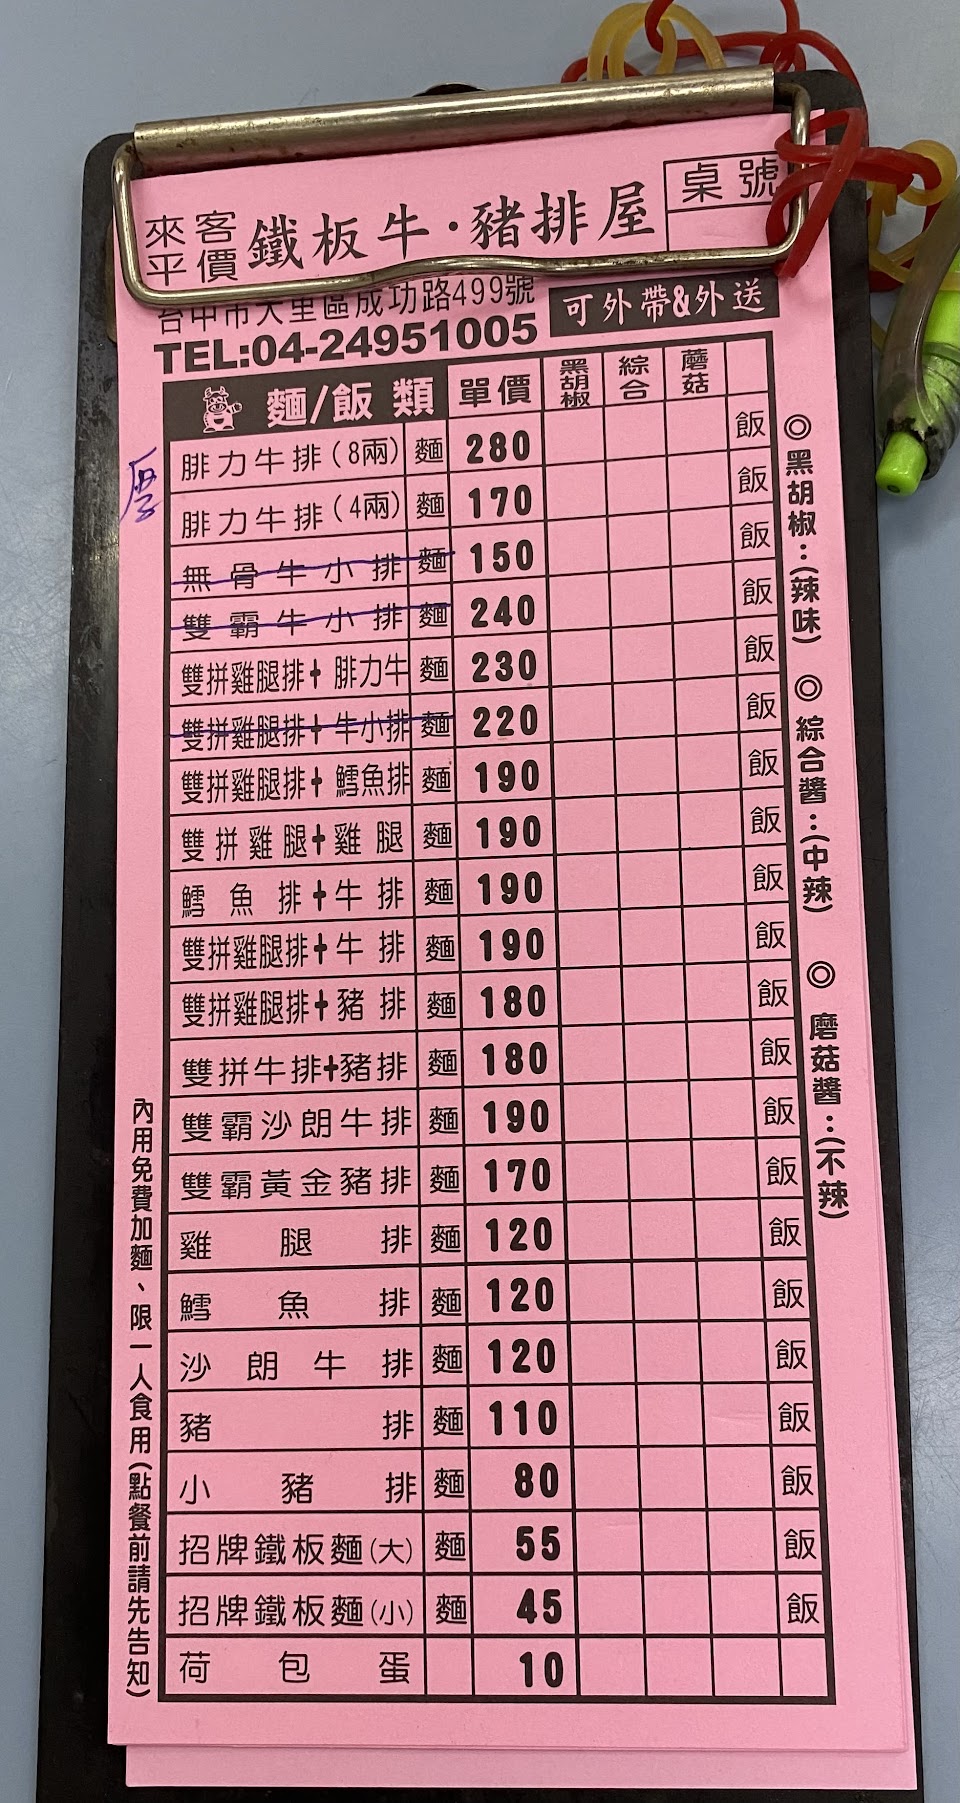 來客
平價
鐵板牛·豬排屋
桌號
台中市大里區成功路499號
TEL:04-24951005
可外帶&外送
麵/飯 類 單價 黑胡椒 綜合 蘑菇
腓力牛排(8兩) 麵 280 飯
厚
腓力牛排(4兩) 麵 170 飯
無骨牛小排 麵 150 飯
雙霸牛小排 麵 240 飯
雙拼雞腿排+腓力牛 麵 230 飯
雙拼雞腿排+牛小排 麵 220 飯
雙拼雞腿排+鱈魚排 麵 190 飯
雙拼雞腿+雞腿 麵 190 飯
鱈魚排+牛排 麵 190 飯
雙拼雞腿排+牛排 麵 190 飯
雙拼雞腿排+豬排 麵 180 飯
雙拼牛排+豬排 麵 180 飯
雙霸沙朗牛排 麵 190 飯
雙霸黃金豬排 麵 170 飯
雞腿排 麵 120 飯
鱈魚排 麵 120 飯
沙朗牛排 麵 120 飯
豬排 麵 110 飯
小豬排 麵 80 飯
招牌鐵板麵(大) 麵 55 飯
招牌鐵板麵(小) 麵 45 飯
荷包蛋 10
◎黑胡椒:(辣味) ◎綜合醬:(中辣) ◎磨菇醬:(不辣)
內用免費加麵、限一人食用(點餐前請先告知)